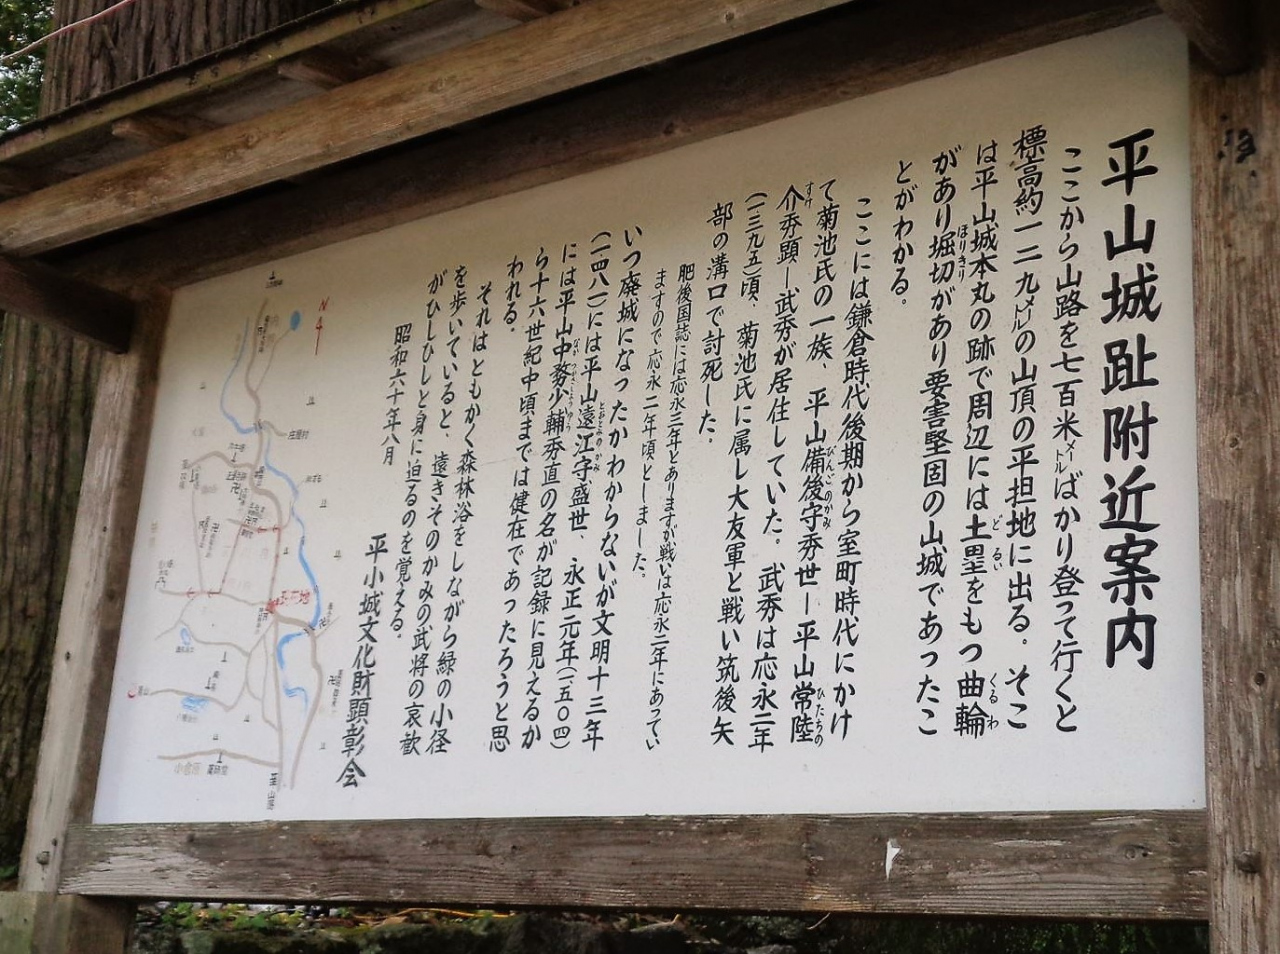 平山城趾附近案内
ここから山路を七百米ばかり登って行くと
標高約一二九㍍の山頂の平担地に出る。そこ
は平山城本丸の跡で周辺には土塁をもつ曲輪
があり堀切があり要害堅固の山城であったこ
とがわかる。
ここには鎌倉時代後期から室町時代にかけ
て菊池氏の一族、平山備後守秀世―平山常陸
介秀顕―武秀が居住していた。武秀は応永二年
(一三九五)頃、菊池氏に属し大友軍と戦い筑後矢
部の溝口で討死した。
肥後国誌には応永三年とありますが戦いは応永二年にあってい
ますので応永二年頃としました。
いつ廃城になったかわからないが文明十三年
(一四八一)には平山遠江守盛世、永正元年(一五〇四)
には平山中務少輔秀直の名が記録に見えるか
ら十六世紀中頃までは健在であったろうと思
われる。
それはともかく森林浴をしながら緑の小径
を歩いていると、遠きそのかみの武将の哀歓
がひしひしと身に迫るのを覚える。
昭和六十年八月
平小城文化財顕彰会
N
4
庄屋村
現在地
小倉原
薬師堂
至山鹿